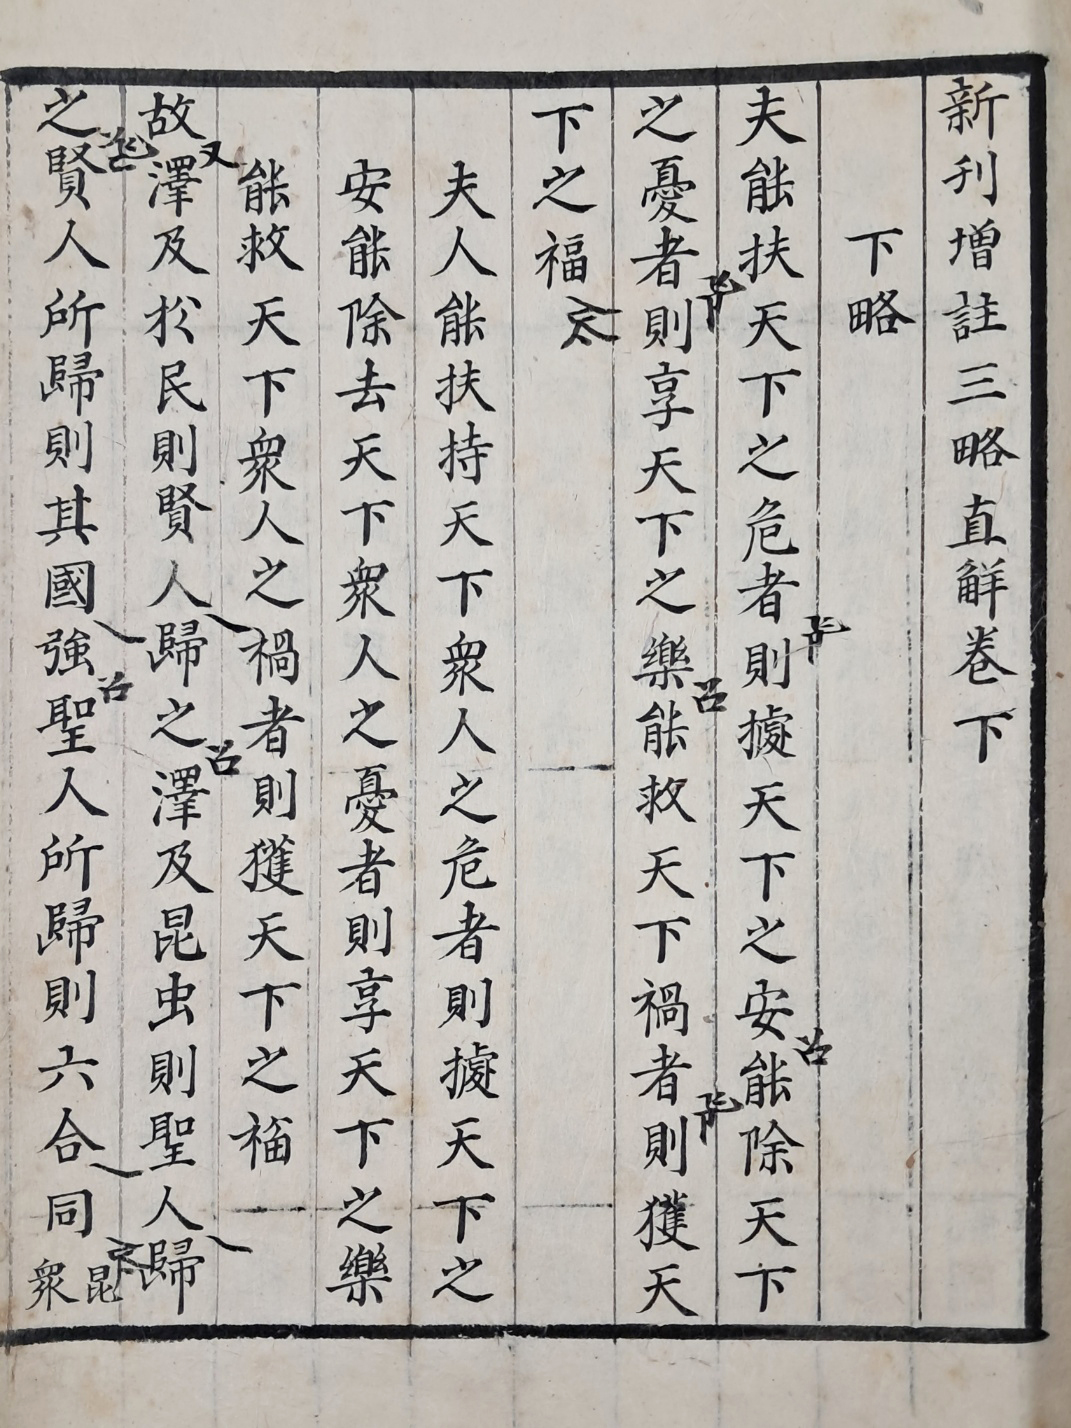 新刊增註三略直解卷下
下略
夫能扶天下之危者則據天下之安能除天下
之憂者則享天下之樂能救天下禍者則獲天
下之福
夫人能扶持天下衆人之危者則據天下之
安能除去天下衆人之憂者則享天下之樂
能救天下衆人之禍者則獲天下之福
故澤及於民則賢人歸之澤及昆虫則聖人歸
之賢人所歸則其國強聖人所歸則六合同昆
衆